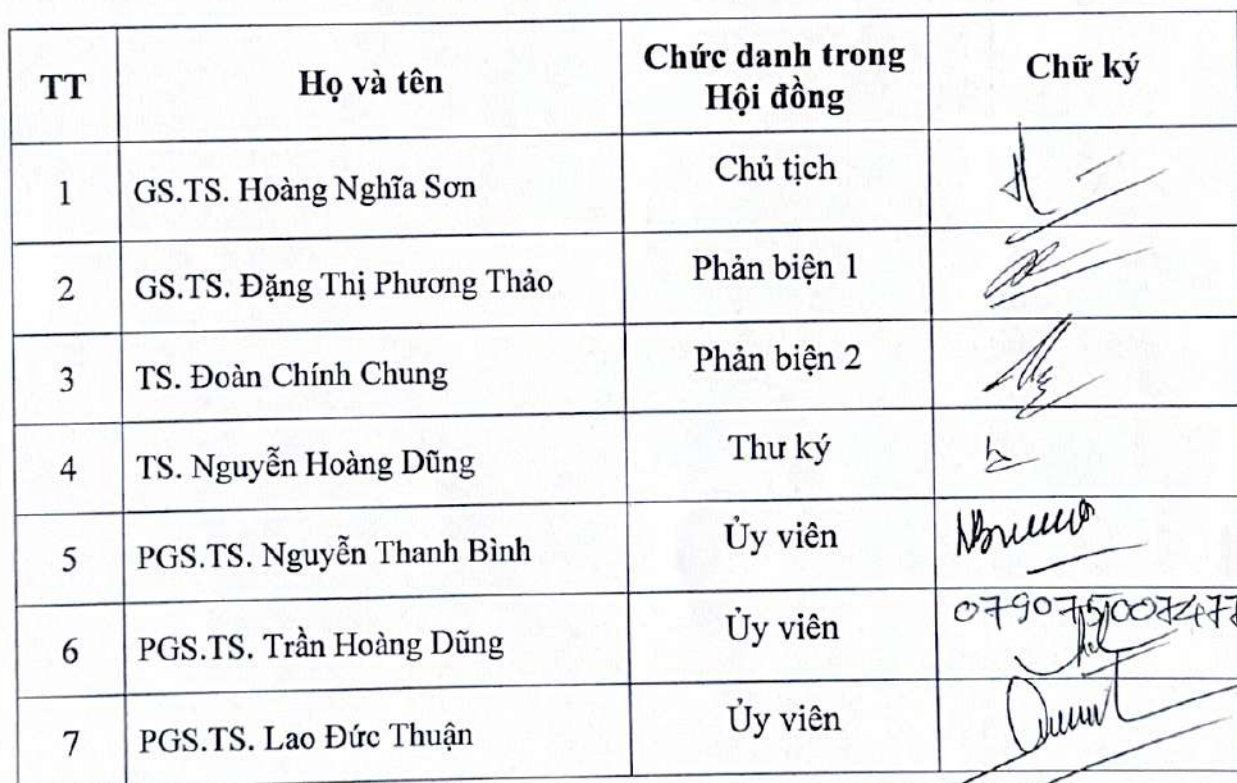 TT Họ và tên Chức danh trong Hội đồng Chữ ký
1 GS.TS. Hoàng Nghĩa Sơn Chủ tịch
2 GS.TS. Đặng Thị Phương Thảo Phản biện 1
3 TS. Đoàn Chính Chung Phản biện 2
4 TS. Nguyễn Hoàng Dũng Thư ký
5 PGS.TS. Nguyễn Thanh Bình Ủy viên
6 PGS.TS. Trần Hoàng Dũng Ủy viên
7 PGS.TS. Lao Đức Thuận Ủy viên